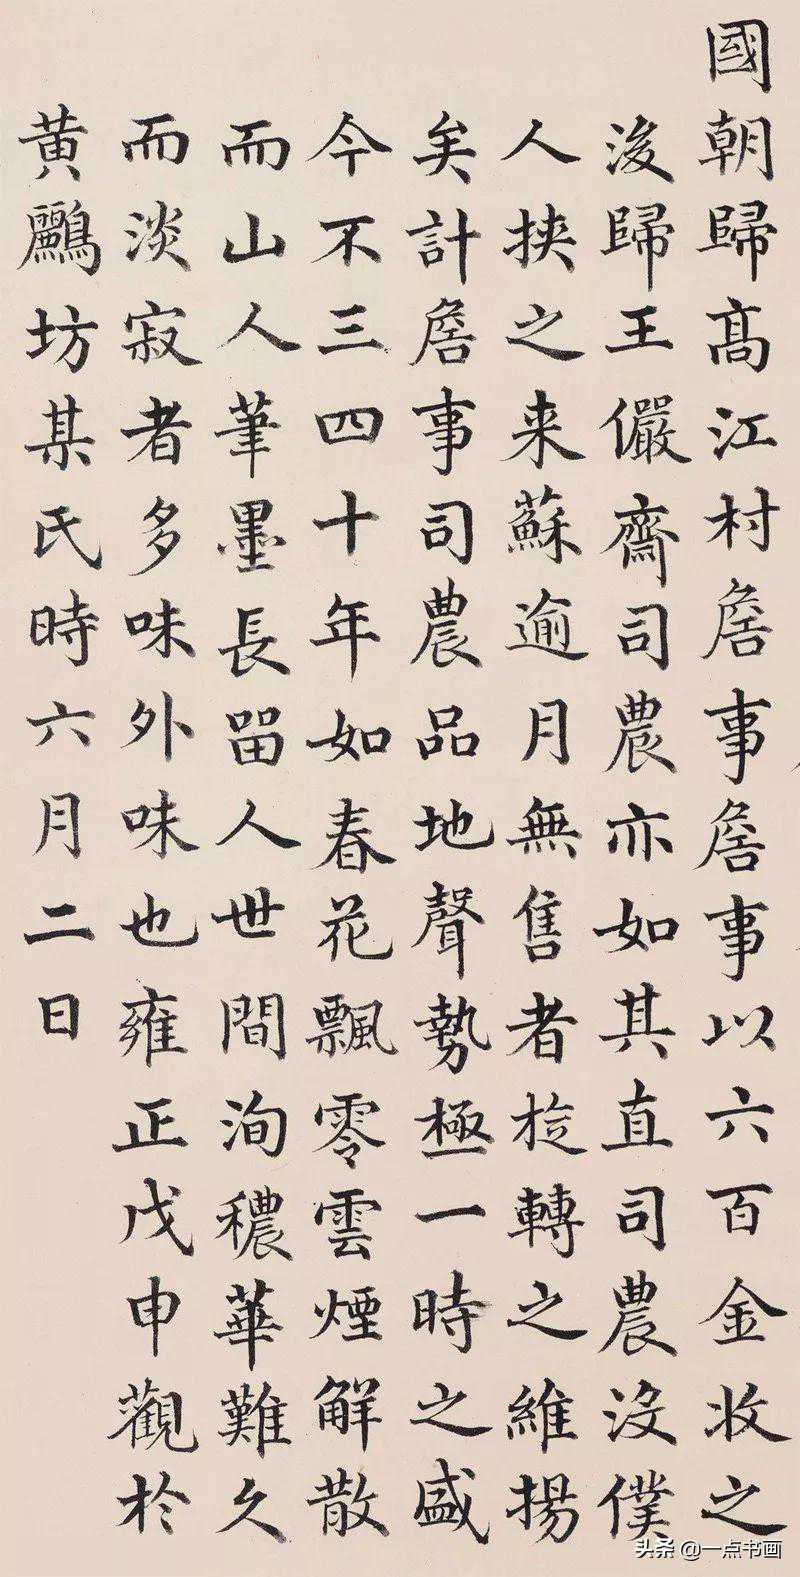 國朝歸髙江村詹事詹事以六百金收之
後歸王儼齋司農亦如其直司農沒僕
人挾之来蘇逾月無售者旋轉之維揚
矣計詹事司農品地聲勢極一時之盛
今不三四十年如春花飄零雲煙解散
而山人筆墨長留人世間洵穠華難久
而淡寂者多味外味也雍正戊申觀於
黄鸝坊某氏時六月二日
头条 @一点书画